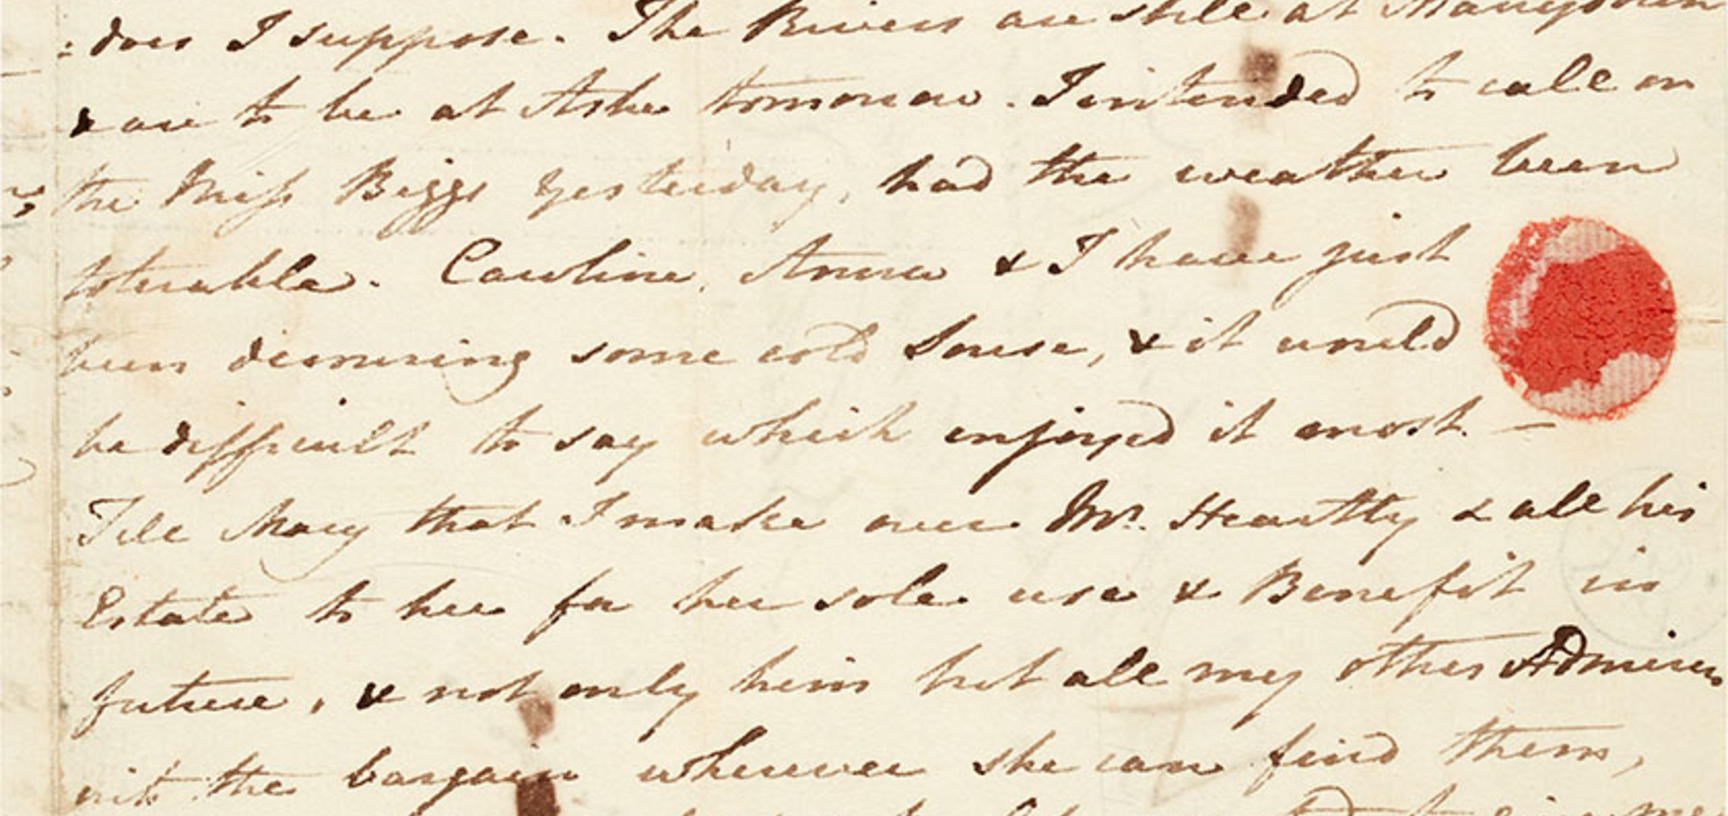 :does I suppose. The Rivers are still at Manydown
& are to be at Ashe tomorrow. I intended to call on
the Miss Biggs yesterday, had the weather been
tolerable. Caroline, Anna & I have just
been devouring some cold Souse, & it would
be difficult to say which enjoyed it most. —
Tell Mary that I make over Mr. Heartley & all his
Estate to her for her sole use & Benefit in
future, & not only him but all my other Admirers
into the bargain wherever she can find them,